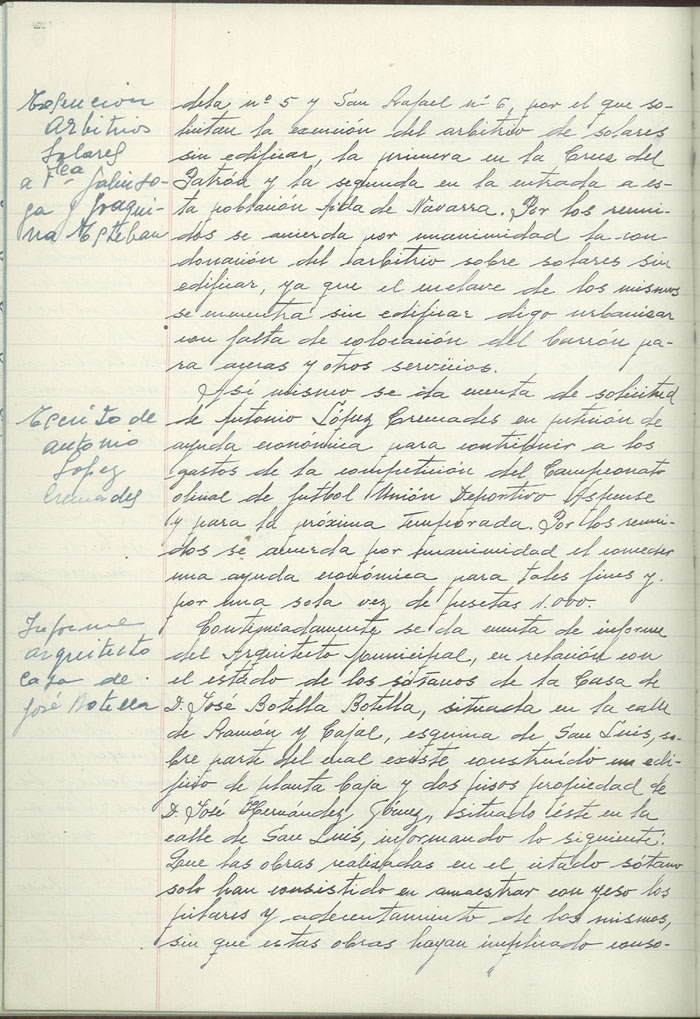 Exención
Arbitrios
Solares
a Fca Galinso-
ga y Joaqui-
na Esteban
dela nº 5 y San Rafael nº 6, por el que so-
licitan la exención del arbitrio de solares
sin edificar, la primera en la Cruz del
Patrón y la segunda en la entrada a es-
ta población Avda de Navarra. Por los reuni-
dos se acuerda por unanimidad la con-
donación del arbitrio sobre solares sin
edificar, ya que el enclave de los mismos
se encuentra sin edificar digo urbanizar
con falta de colocación del barrón pa-
ra aceras y otros servicios.
Escrito de
Antonio
López
Cremades
Así mismo se da cuenta de solicitud
de Antonio López Cremades en petición de
ayuda económica para contribuir a los
gastos de la competición del Campeonato
oficial de futbol Unión Deportivo Aspense
y para la próxima temporada. Por los reuni-
dos se acuerda por unanimidad el conceder
una ayuda económica para tales fines y
por una sola vez de pesetas 1.000.
Informe
arquitecto
casa de
José Botella
Continuadamente se da cuenta de informe
del Arquitecto Municipal, en relación con
el estado de los sótanos de la Casa de
D. José Botella Botella, situada en la calle
de Ramón y Cajal, esquina de San Luis, so-
bre parte del cual existe construido un edi-
ficio de planta baja y dos pisos propiedad de
D. José Hernández Gómez, situado éste en la
calle de San Luis, informando lo siguiente:
Que las obras realizadas en el citado sótano
solo han consistido en amaestrar con yeso los
pilares y adecentamiento de los mismos,
sin que estas obras hayan implicado conso-